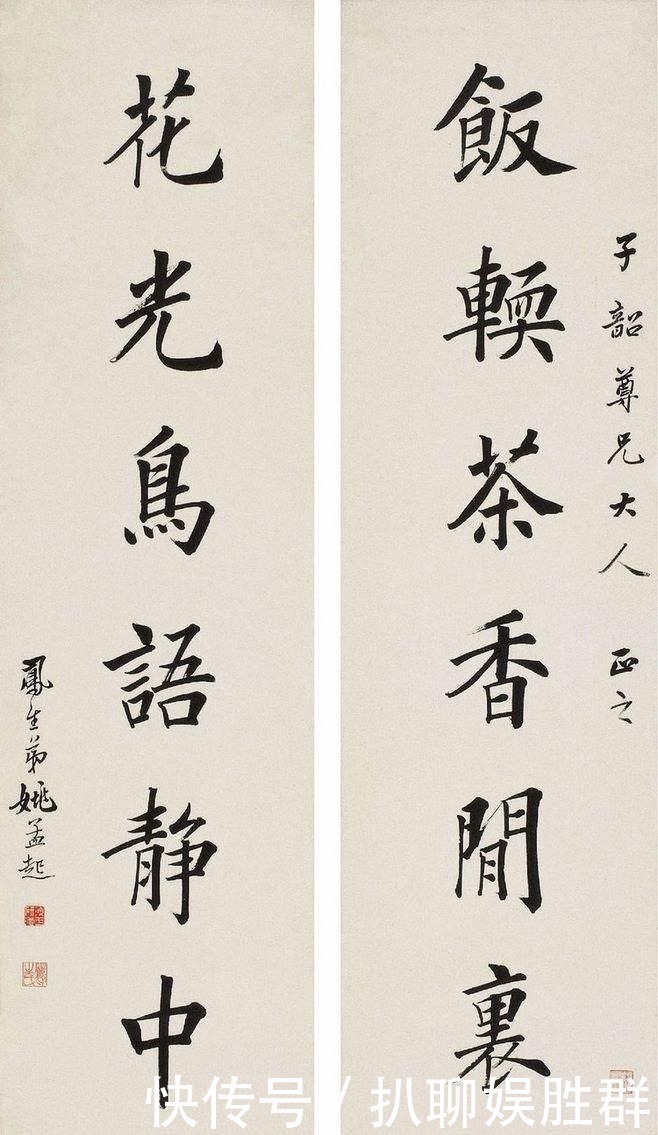 子韶尊兄大人 正之
飯輭茶香閒裏
花光鳥語静中
鳳生弟姚孟起
快传号 / 扒聊娱胜群